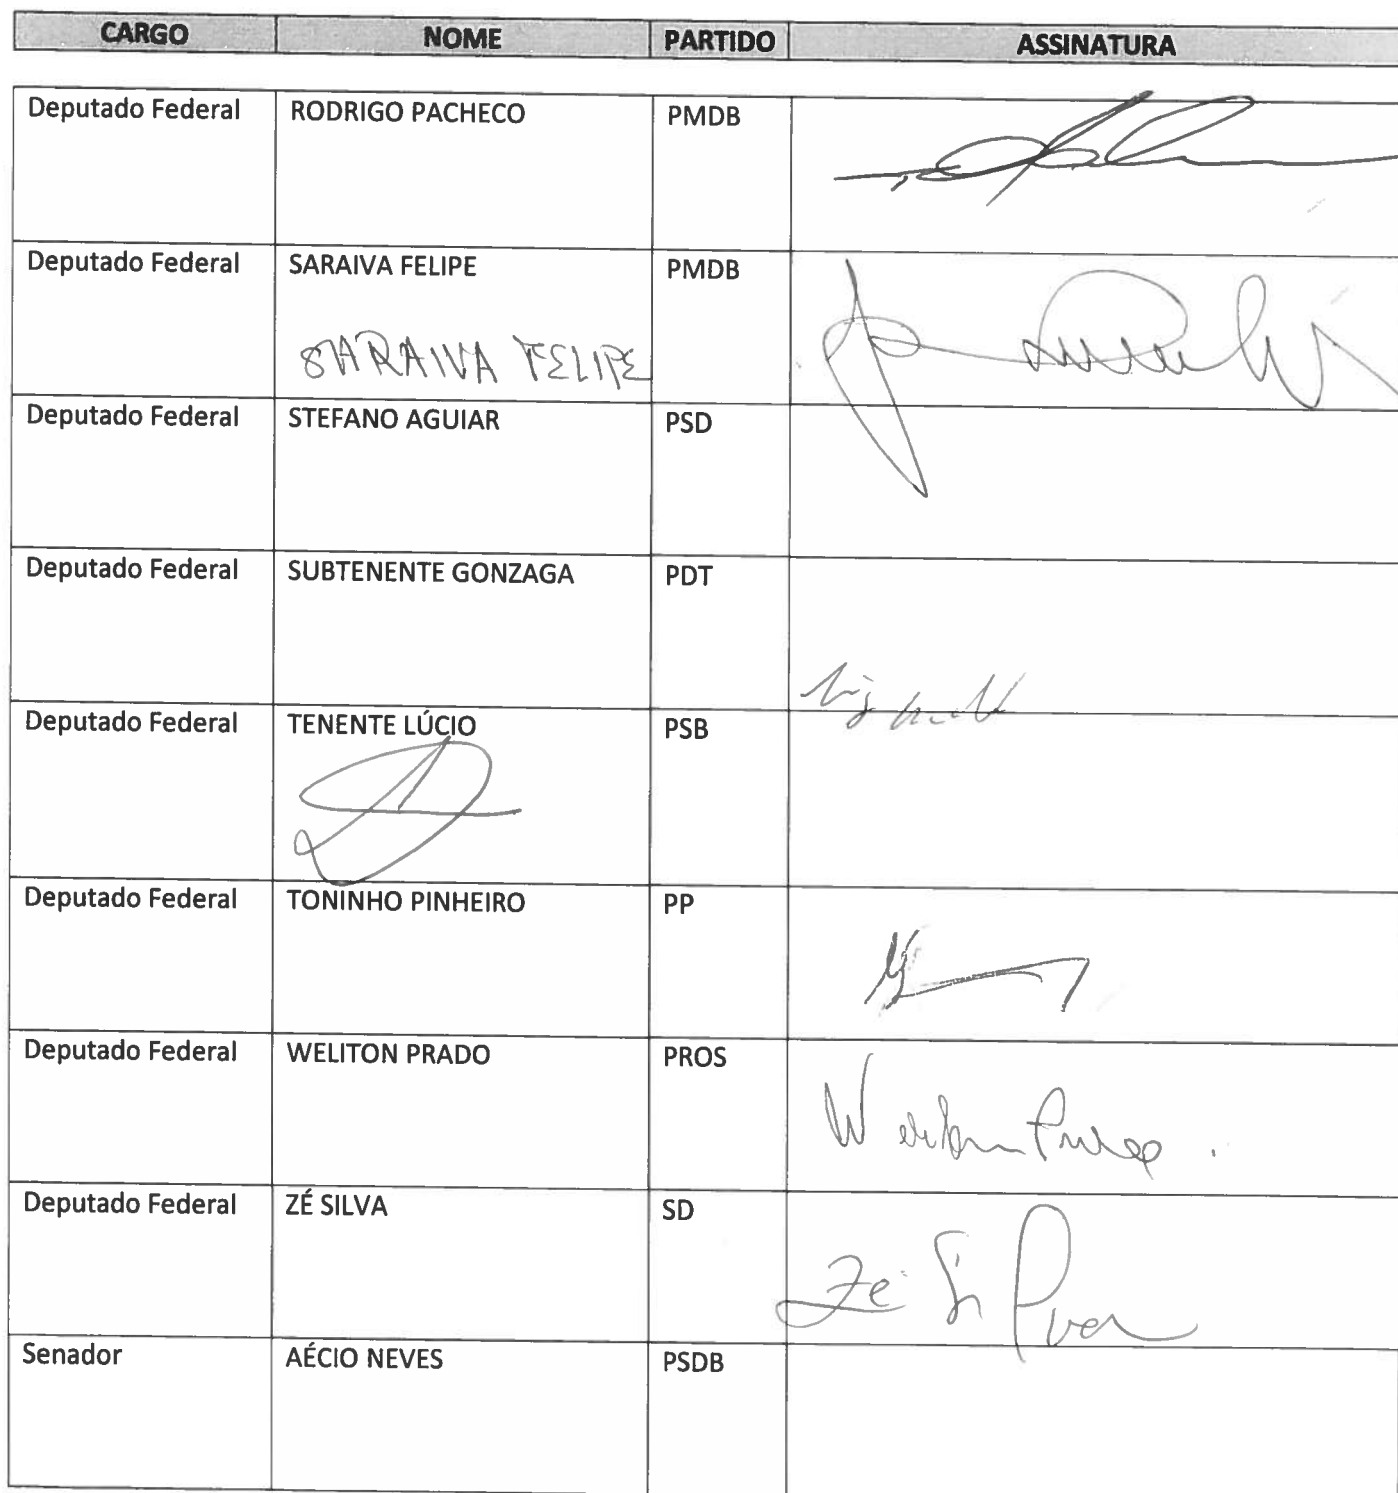 CARGO NOME PARTIDO ASSINATURA
Deputado Federal RODRIGO PACHECO PMDB
Deputado Federal SARAIVA FELIPE PMDB
SARAIVA FELIPE
Deputado Federal STEFANO AGUIAR PSD
Deputado Federal SUBTENENTE GONZAGA PDT
Deputado Federal TENENTE LÚCIO PSB
Deputado Federal TONINHO PINHEIRO PP
Deputado Federal WELITON PRADO PROS
Weliton Prado
Deputado Federal ZÉ SILVA SD
Zé Silva
Senador AÉCIO NEVES PSDB